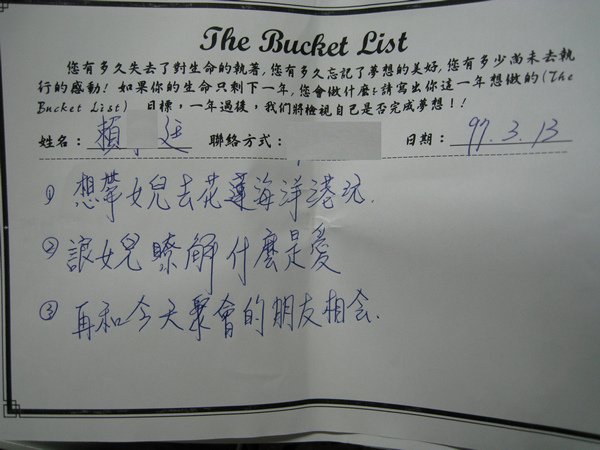 The Bucket List
您有多久失去了對生命的執著,您有多久忘記了夢想的美好,您有多少尚未去執
行的感動! 如果你的生命只剩下一年,您會做什麼?請寫出你這一年想做的(The
Bucket List) 目標,一年過後,我們將檢視自己是否完成夢想!!
姓名:賴 廷 聯絡方式: 日期:97.3.13
① 想帶女兒去花蓮海洋港玩.
② 讓女兒瞭解什麼是愛
③ 再和今天聚會的朋友相会.